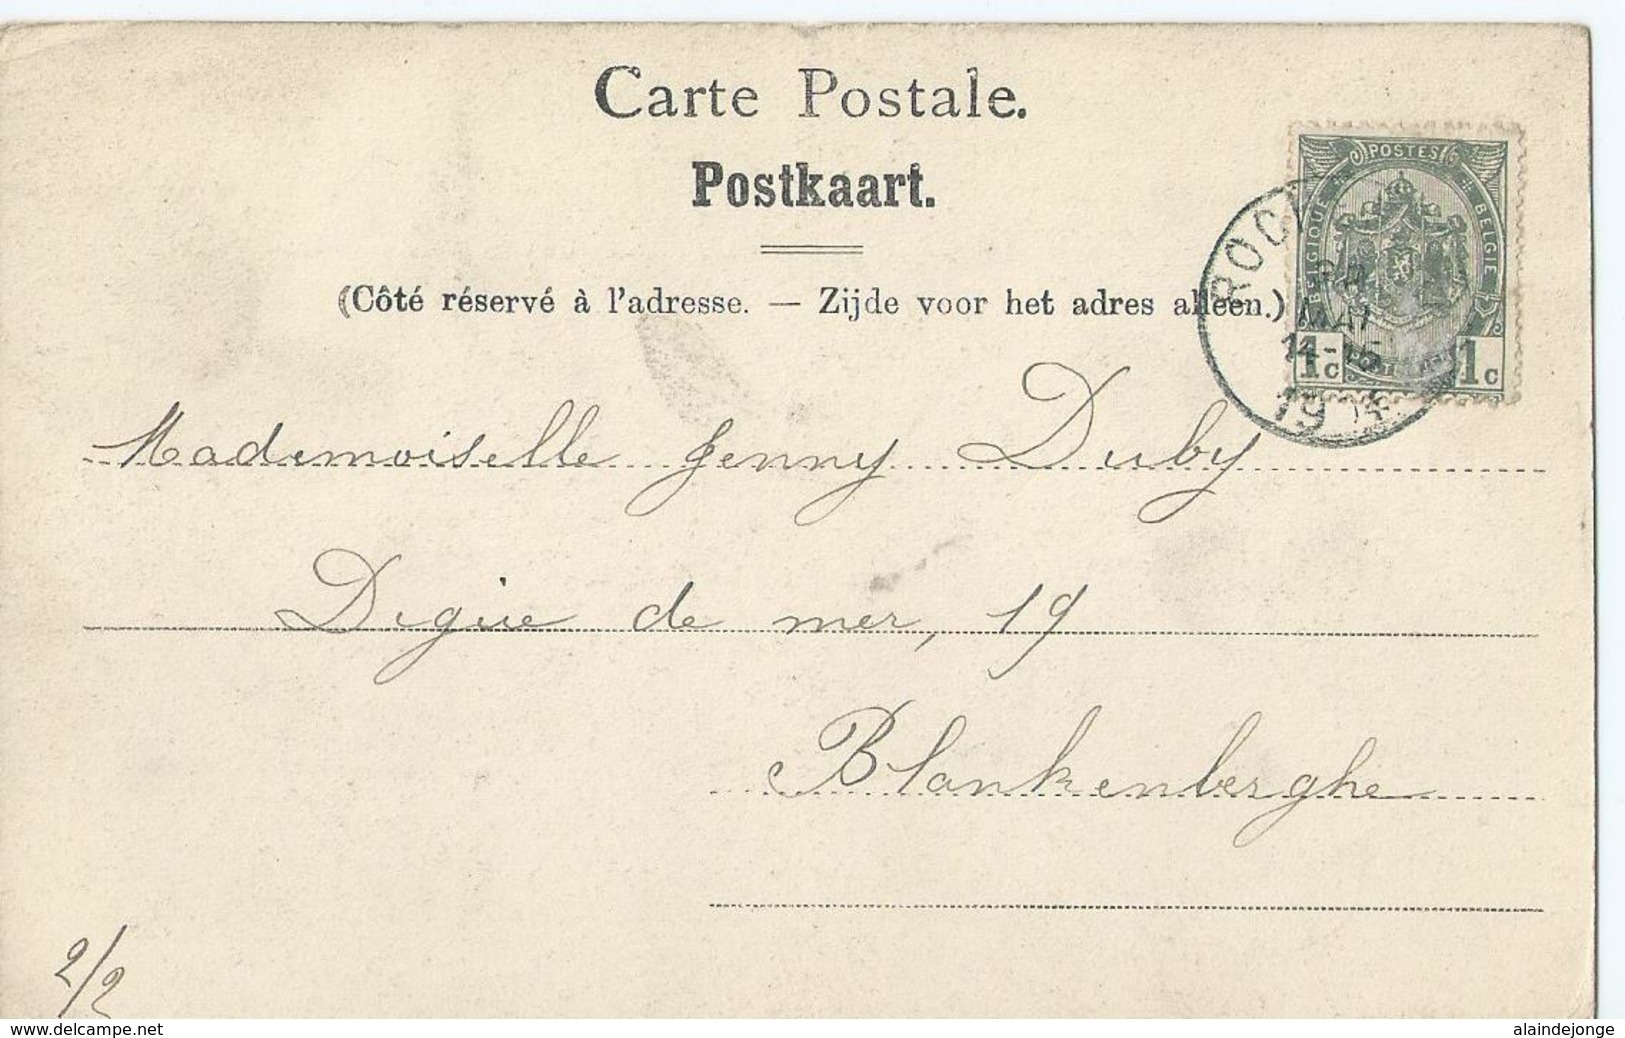 Carte Postale.
Postkaart.
(Côté réservé à l'adresse. — Zijde voor het adres alleen.)
POSTES
BELGIQUE
BELGIE
1c 1c
ROC
Mademoiselle Jenny Duby
Digue de mer, 19
Blankenberghe
2/2
www.delcampe.net
alaindejonge